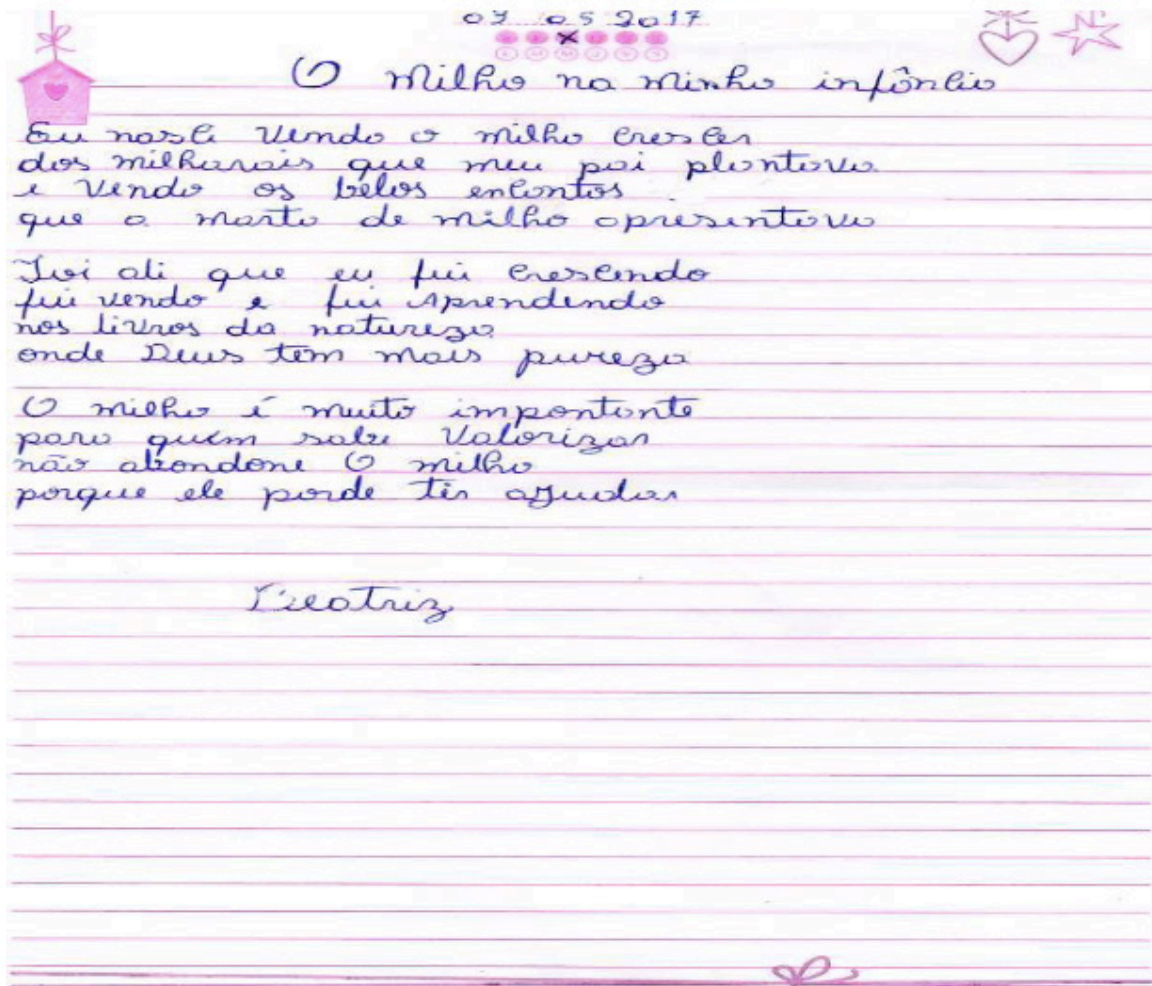 05 2017
O milho na minha infância
Eu nasci vendo o milho crescer
dos milharais que meu pai plantava
e vendo os belos encantos
que a marta de milho apresentava
Foi ali que eu fui crescendo
fui vendo e fui aprendendo
nos livros da natureza
onde Deus tem mais pureza
O milho é muito importante
para quem sabe valorizar
não abandone O milho
porque ele porde tir ajudar
Beatriz